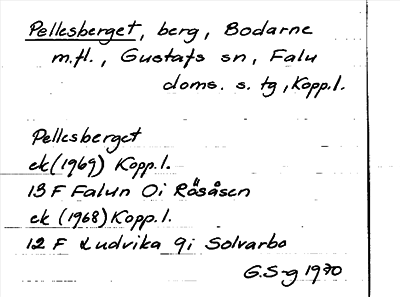 Pellesberget, berg, Bodarne
m.fl., Gustafs sn, Falu
doms. s. tg, Kopp.l.
Pellesberget
ek (1969) Kopp.l.
13 F Falun 0i Rösåsen
ek (1968) Kopp.l.
12 F Ludvika 9i Solvarbo
G.S-g 1970